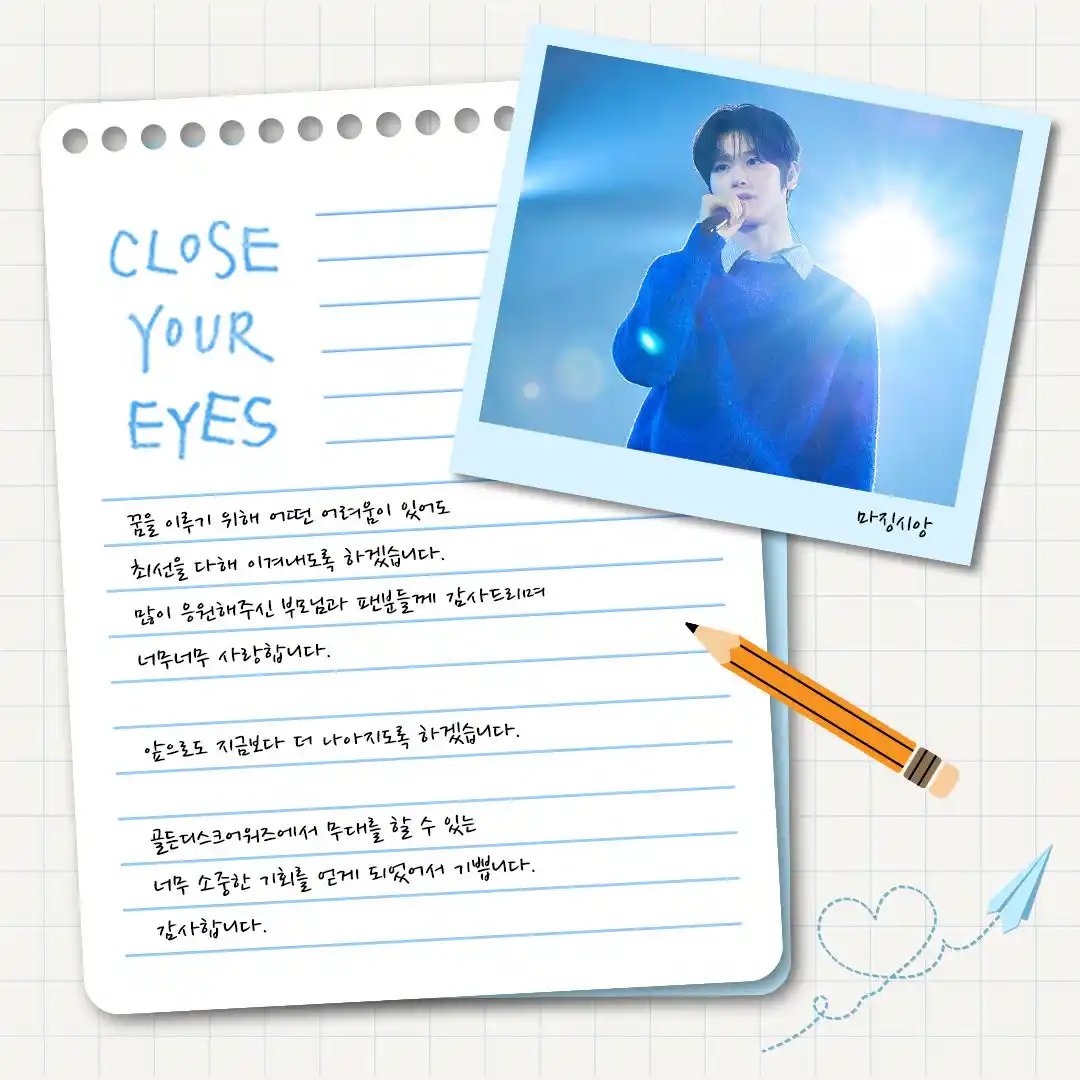 CLOSE
YOUR
EYES
마징시앙
꿈을 이루기 위해 어떤 어려움이 있어도
최선을 다해 이겨내도록 하겠습니다.
많이 응원해주신 부모님과 팬분들께 감사드리며
너무너무 사랑합니다.
앞으로도 지금보다 더 나아지도록 하겠습니다.
골든디스크어워즈에서 무대를 할 수 있는
너무 소중한 기회를 얻게 되었어서 기쁩니다.
감사합니다.